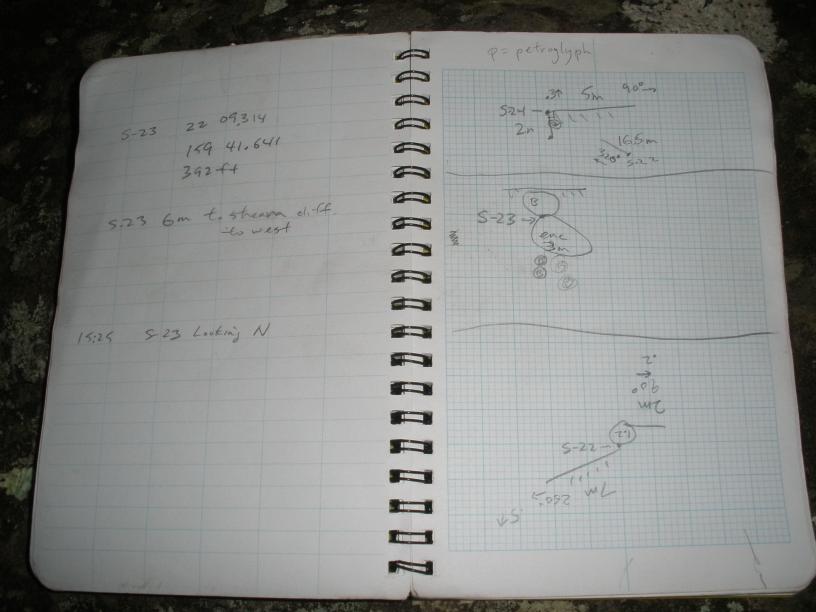 S-23 22 09.314
159 41.641
392 ft
S-23 6m t. stream cliff
to west
15:25 S-23 Looking N
φ = petroglyph
.3↑ 5m 90°→
S-21
2m
16.5m
320°
S-22
B
S-23 →
enc
3m
.2
→
90°
2m
1.2
S-22 →
7m
250°
.5